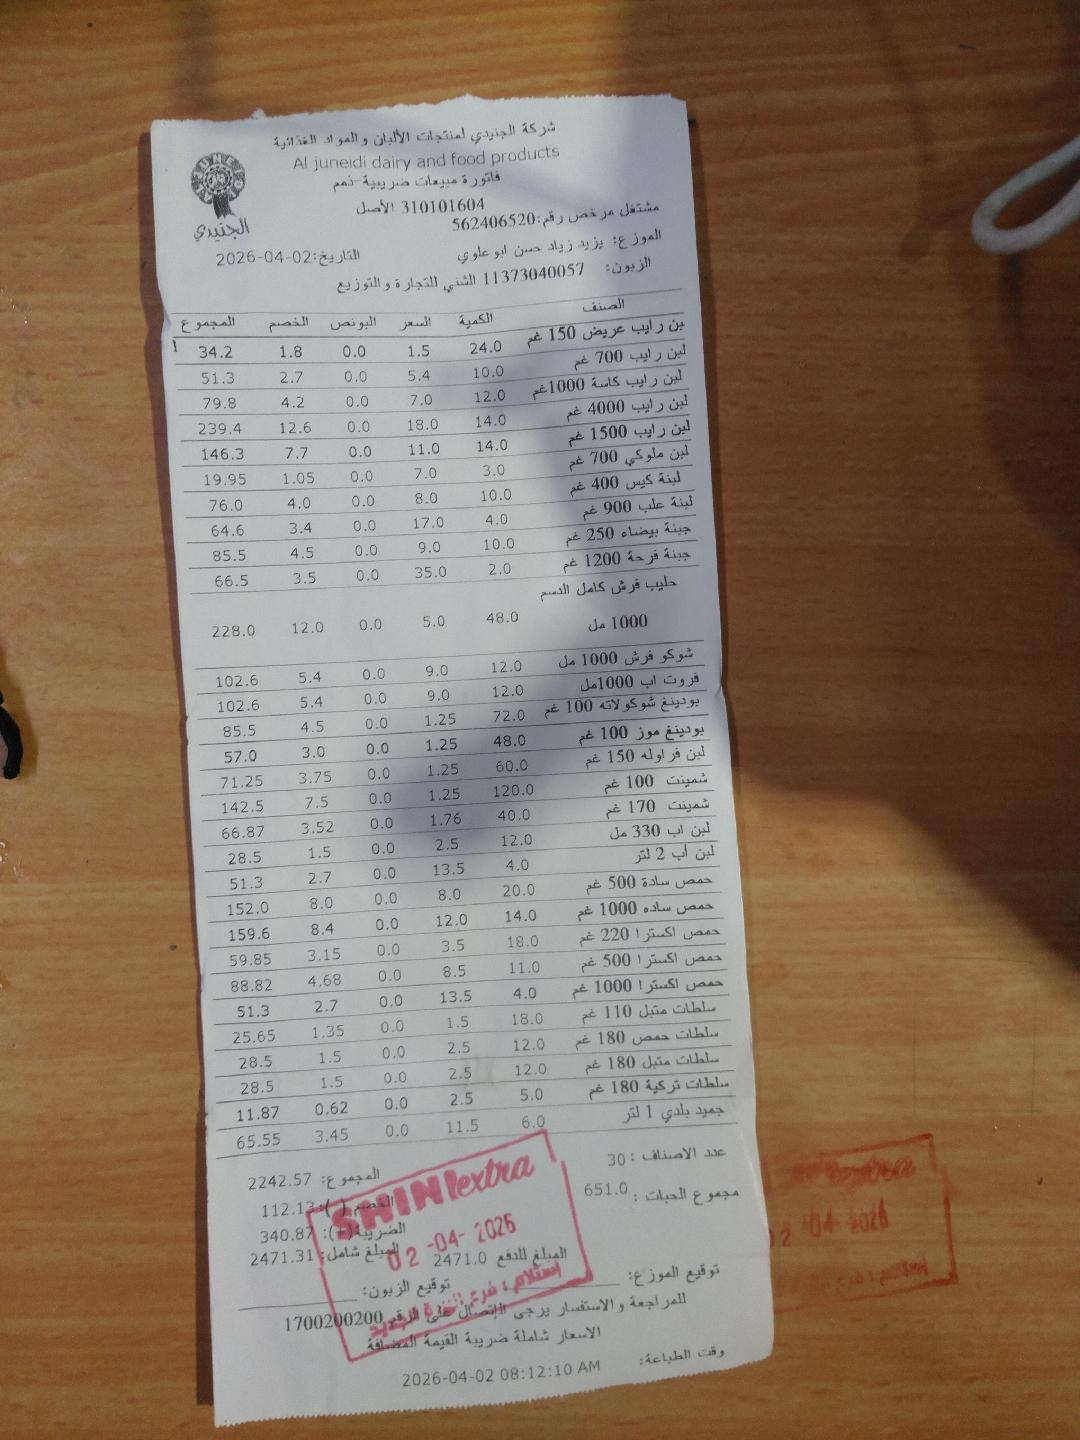 شركة الجنيدي لمنتجات الألبان والمواد الغذائية
Al juneidi dairy and food products
فاتورة مبيعات ضريبية-ذمم
310101604 الأصل
الجنيدي
مشتغل مرخص رقم:562406520
الموزع: يزيد زياد حسن ابو علوي التاريخ:2026-04-02
الزبون: 11373040057 الشني للتجارة والتوزيع
الصنف الكمية السعر البونص الخصم المجموع
بن رايب عريض 150 غم 24.0 1.5 0.0 1.8 34.2
لبن رايب 700 غم 10.0 5.4 0.0 2.7 51.3
لبن رايب كاسة 1000غم 12.0 7.0 0.0 4.2 79.8
لبن رايب 4000 غم 14.0 18.0 0.0 12.6 239.4
لبن رايب 1500 غم 14.0 11.0 0.0 7.7 146.3
لبن ملوكي 700 غم 3.0 7.0 0.0 1.05 19.95
لبنة كيس 400 غم 10.0 8.0 0.0 4.0 76.0
لبنة علب 900 غم 4.0 17.0 0.0 3.4 64.6
جبنة بيضاء 250 غم 10.0 9.0 0.0 4.5 85.5
جبنة فرحة 1200 غم 2.0 35.0 0.0 3.5 66.5
حليب فرش كامل الدسم
1000 مل 48.0 5.0 0.0 12.0 228.0
شوكو فرش 1000 مل 12.0 9.0 0.0 5.4 102.6
فروت اب 1000مل 12.0 9.0 0.0 5.4 102.6
بودينغ شوكولاته 100 غم 72.0 1.25 0.0 4.5 85.5
بودينغ موز 100 غم 48.0 1.25 0.0 3.0 57.0
لبن فراوله 150 غم 60.0 1.25 0.0 3.75 71.25
شمينت 100 غم 120.0 1.25 0.0 7.5 142.5
شمينت 170 غم 40.0 1.76 0.0 3.52 66.87
لبن اب 330 مل 12.0 2.5 0.0 1.5 28.5
لبن اب 2 لتر 4.0 13.5 0.0 2.7 51.3
حمص سادة 500 غم 20.0 8.0 0.0 8.0 152.0
حمص ساده 1000 غم 14.0 12.0 0.0 8.4 159.6
حمص اكسترا 220 غم 18.0 3.5 0.0 3.15 59.85
حمص اكسترا 500 غم 11.0 8.5 0.0 4.68 88.82
حمص اكسترا 1000 غم 4.0 13.5 0.0 2.7 51.3
سلطات متبل 110 غم 18.0 1.5 0.0 1.35 25.65
سلطات حمص 180 غم 12.0 2.5 0.0 1.5 28.5
سلطات متبل 180 غم 12.0 2.5 0.0 1.5 28.5
سلطات تركية 180 غم 5.0 2.5 0.0 0.62 11.87
جميد بلدي 1 لتر 6.0 11.5 0.0 3.45 65.55
عدد الاصناف : 30 المجموع: 2242.57
مجموع الحبات : 651.0 الخصم(-): 112.13
الضريبة(+): 340.87
المبلغ شامل: 2471.31
المبلغ للدفع 2471.0
SHINI extra
02 -04- 2026
استلام : فرع
توقيع الموزع: توقيع الزبون:
للمراجعة والاستفسار يرجى الإتصال على الرقم 1700200200
الاسعار شاملة ضريبة القيمة المضافة
وقت الطباعة: 2026-04-02 08:12:10 AM
02 -04- 2026